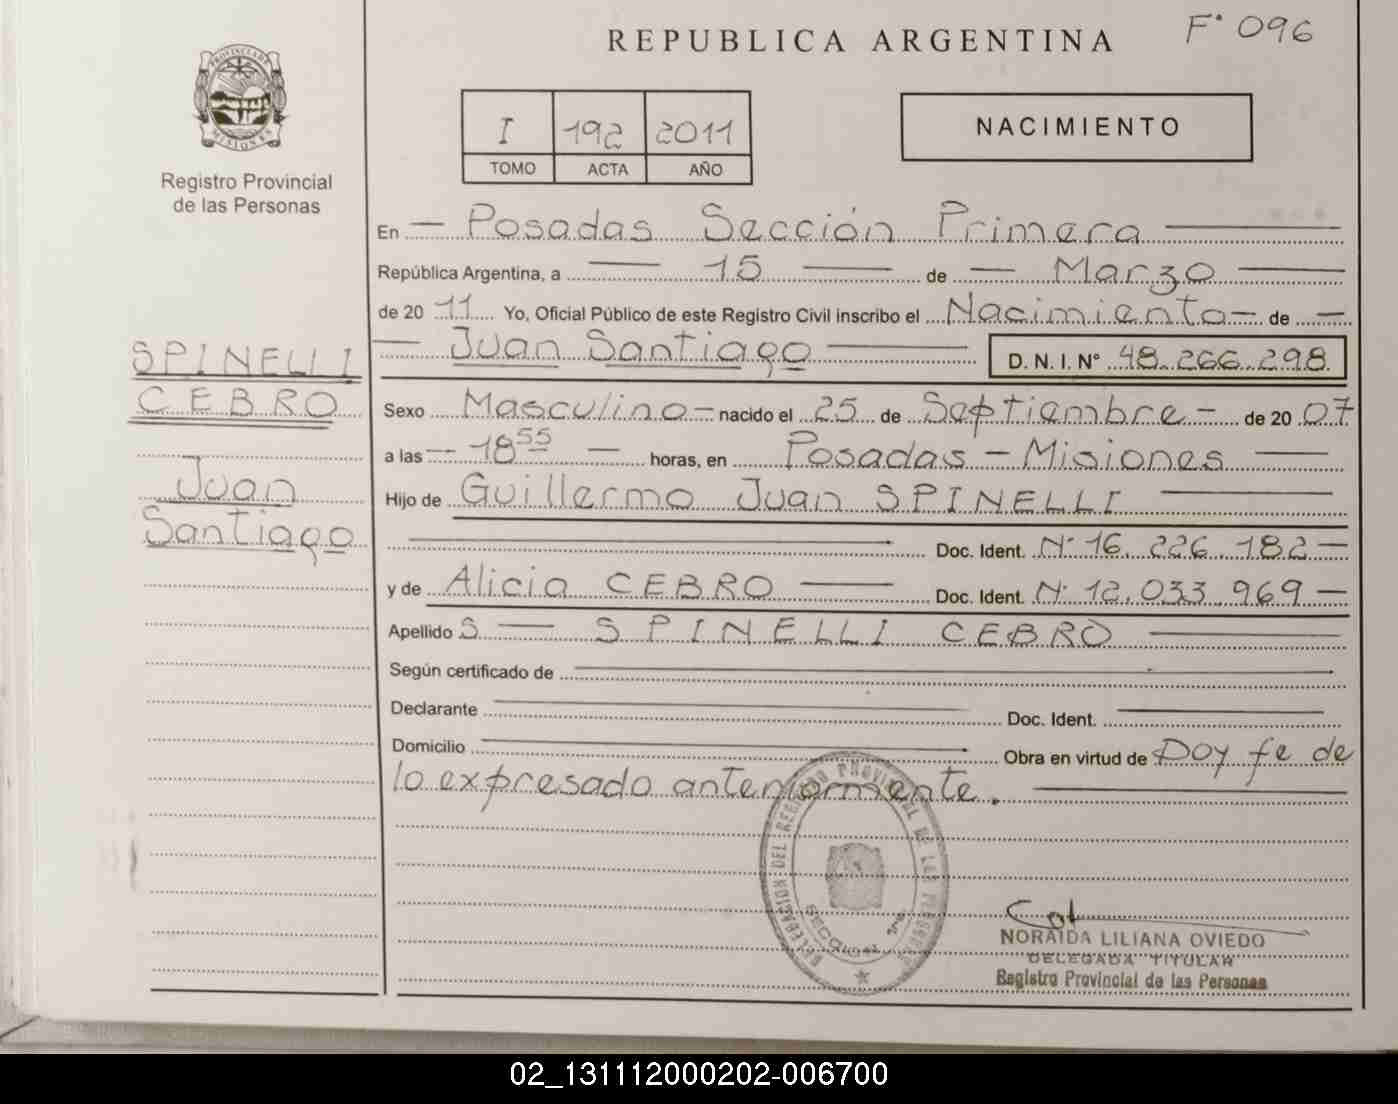 REPUBLICA ARGENTINA
Fº 096
PROVINCIA DE
MISIONES
Registro Provincial
de las Personas
I 192 2011
TOMO ACTA AÑO
NACIMIENTO
En — Posadas Sección Primera —
República Argentina, a — 15 — de — Marzo —
de 20 11 Yo, Oficial Público de este Registro Civil inscribo el Nacimiento — de —
— Juan Santiago — D. N. I. Nº 48.266.298
SPINELLI
CEBRO
Juan
Santiago
Sexo Masculino — nacido el 25 de Septiembre — de 20 07
a las — 18 55 — horas, en Posadas – Misiones —
Hijo de Guillermo Juan SPINELLI —
— Doc. Ident. Nº 16.226.182 —
y de Alicia CEBRO — Doc. Ident. Nº 12.033.969 —
Apellido S — SPINELLI CEBRO —
Según certificado de —
Declarante — Doc. Ident. —
Domicilio — Obra en virtud de Doy fe de
lo expresado anteriormente. —
DELEGACION DEL REGISTRO PROVINCIAL DE LAS PERSONAS
NORAIDA LILIANA OVIEDO
DELEGADA TITULAR
Registro Provincial de las Personas
02_131112000202-006700